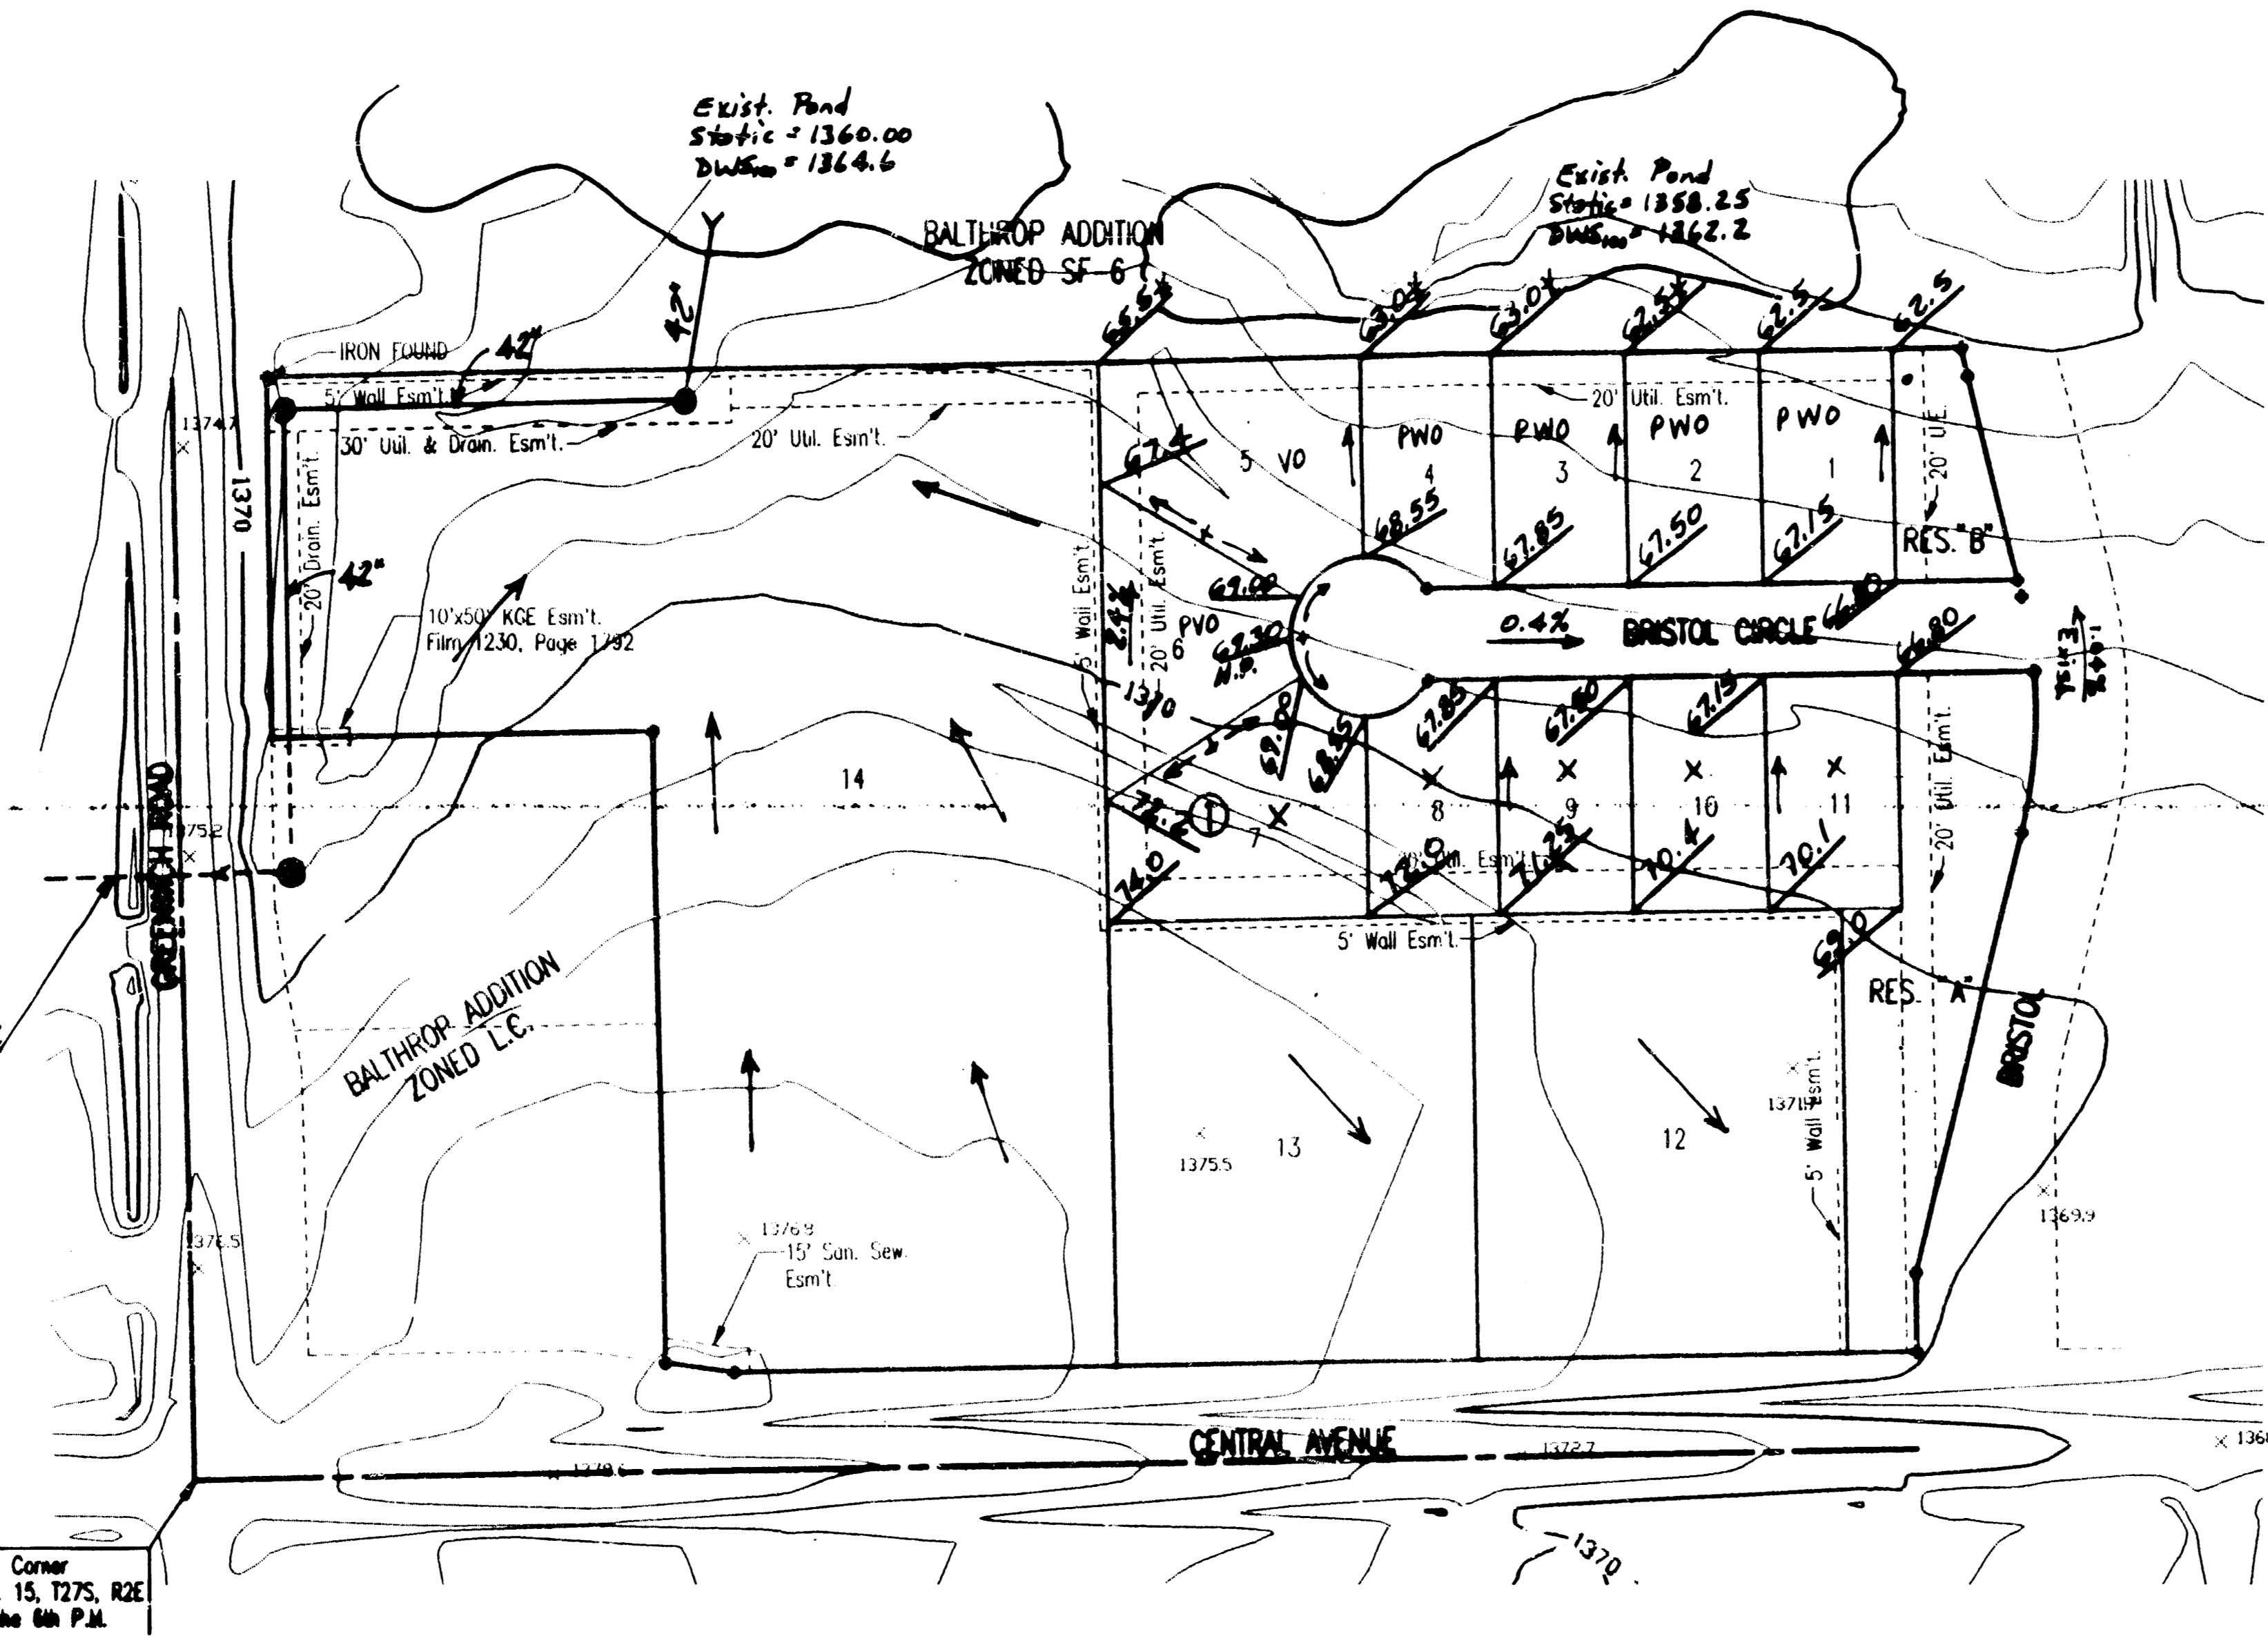 Exist. Pond
Static = 1360.00
DWS₁₀₀ = 1364.6
Exist. Pond
Static = 1358.25
DWS₁₀₀ = 1362.2
BALTHROP ADDITION
ZONED SF-6
42"
65.5*
63.0*
63.0*
62.5*
62.5
62.5
IRON FOUND
42"
5' Wall Esm't.
30' Util. & Drain. Esm't.
20' Util. Esm't.
20' Util. Esm't.
1374.7
1370
20' Drain. Esm't.
42"
10'x50' KGE Esm't.
Film 1230, Page 1792
67.4
5 VO
PWO
4
PWO
3
PWO
2
PWO
1
20' U.E.
RES. "B"
68.55
67.85
67.50
67.15
66.80
5' Wall Esm't.
20' Util. Esm't.
69.00
PVO
6
69.30
H.P.
0.4%
BRISTOL CIRCLE
66.80
1.04%
Exist.
1370
69.00
68.55
67.85
67.50
67.15
14
72.2
1
X
7
X
8
X
9
X
10
X
11
20' Util. Esm't.
74.0
72.0
71.25
70.4
70.1
69.0
20' Util. Esm't.
5' Wall Esm't.
GREENWICH ROAD
1375.2
BALTHROP ADDITION
ZONED L.C.
RES. "A"
BRISTOL
13
1375.5
12
1371.9
5' Wall Esm't.
1369.9
1376.5
1376.8
15' San. Sew.
Esm't.
CENTRAL AVENUE
1372.7
1370
Corner
15, T27S, R2E
the 6th P.M.